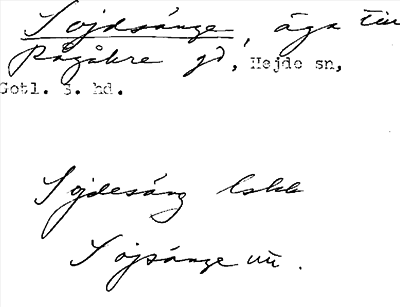 Sojdsänge, äga till
Rågåkre gd, Hejde sn,
Gotl. s. hd.
Sojdesäng
Sojsänge